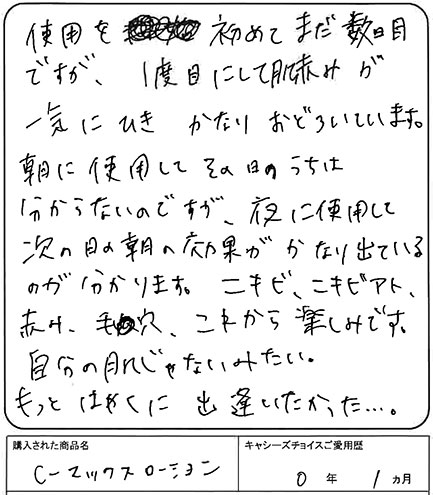 使用を初めてまだ数日目
ですが、1度目にして肌赤みが
一気にひきかなりおどろいています。
朝に使用してその日のうちは
分からないのですが、夜に使用して
次の日の朝の効果がかなり出ている
のが分かります。ニキビ、ニキビアト、
赤み、毛穴、これから楽しみです。
自分の肌じゃないみたい。
もっとはやくに出逢いたかった…。
購入された商品名
キャシーズチョイスご愛用歴
Cーマックスローション
0年1ヵ月